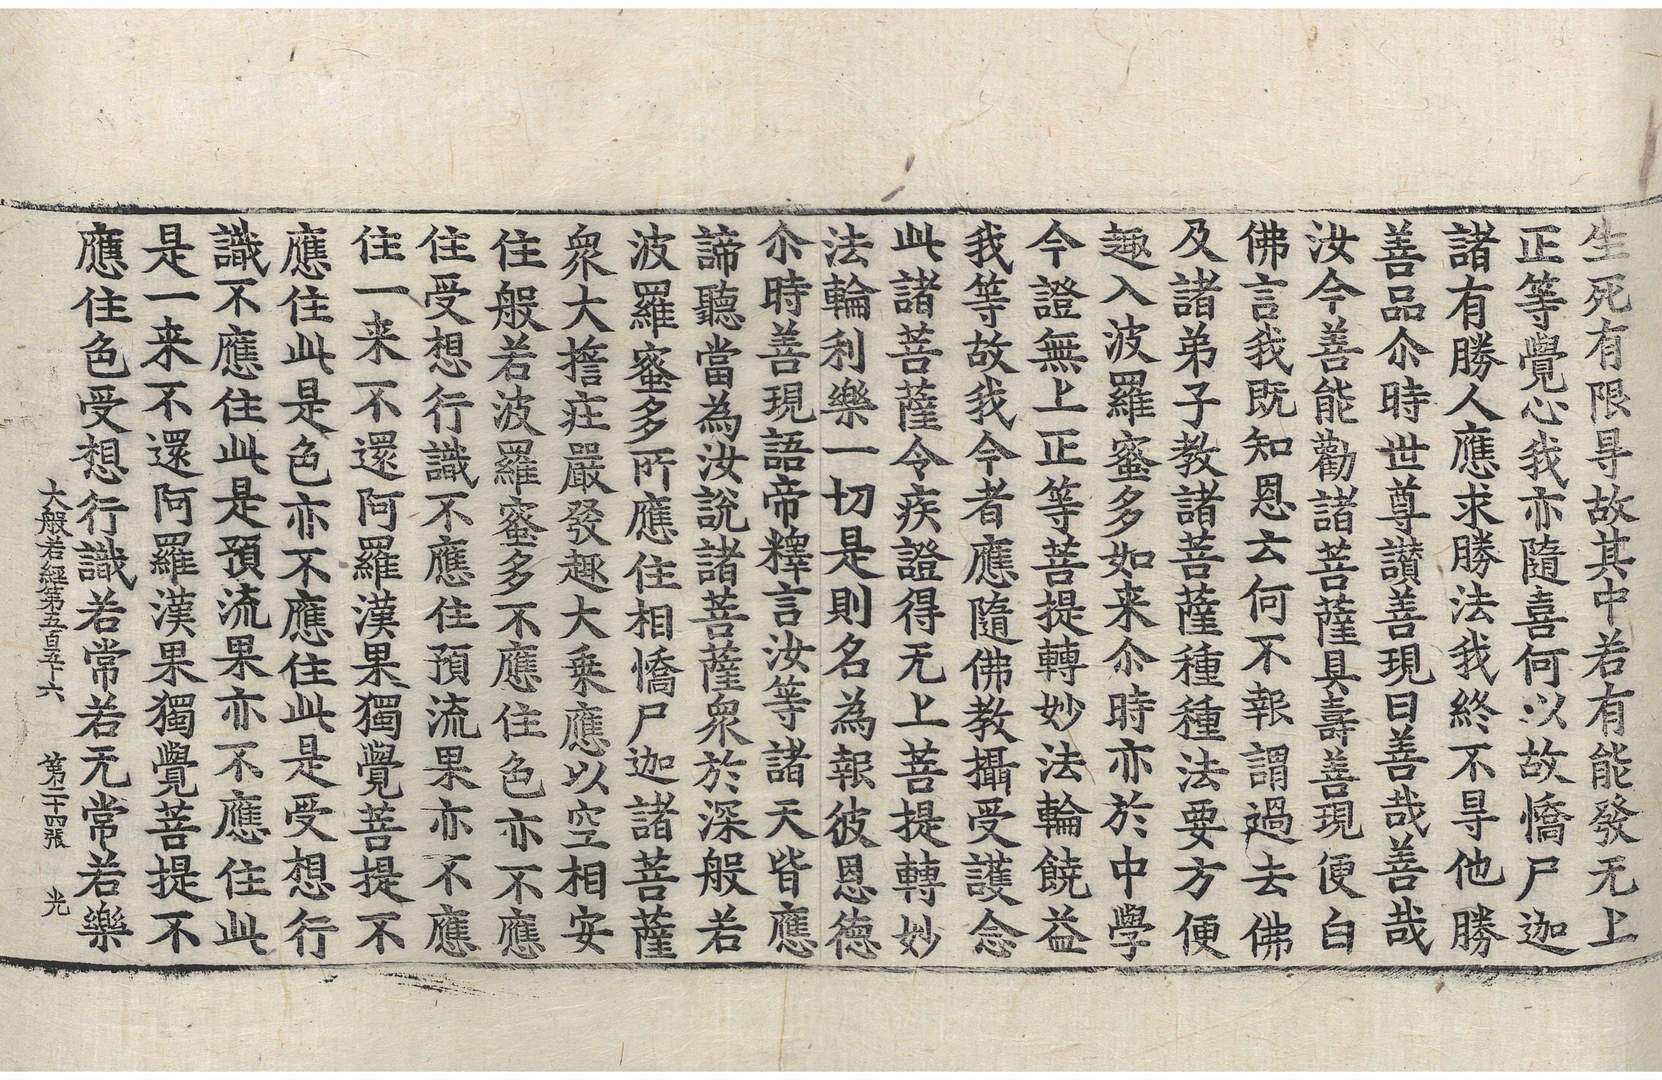 生死有限㝵故其中若有能發无上
正等覺心我亦隨喜何以故憍尸迦
諸有勝人應求勝法我終不㝵他勝
善品尒時世尊讃善現曰善哉善哉
汝今善能勸諸菩薩具壽善現便白
佛言我既知恩云何不報謂過去佛
及諸弟子教諸菩薩種種法要方便
趣入波羅蜜多如来尒時亦於中學
今證無上正等菩提轉妙法輪饒益
我等故我今者應隨佛教攝受護念
此諸菩薩令疾證得无上菩提轉妙
法輪利樂一切是則名為報彼恩德
尒時善現語帝釋言汝等諸天皆應
諦聽當為汝說諸菩薩衆於深般若
波羅蜜多所應住相憍尸迦諸菩薩
衆大擔㽵嚴發趣大乗應以空相安
住般若波羅蜜多不應住色亦不應
住受想行識不應住預流果亦不應
住一来不還阿羅漢果獨覺菩提不
應住此是色亦不應住此是受想行
識不應住此是預流果亦不應住此
是一来不還阿羅漢果獨覺菩提不
應住色受想行識若常若无常若樂
大般若經第五百五十六 第二十四張 光